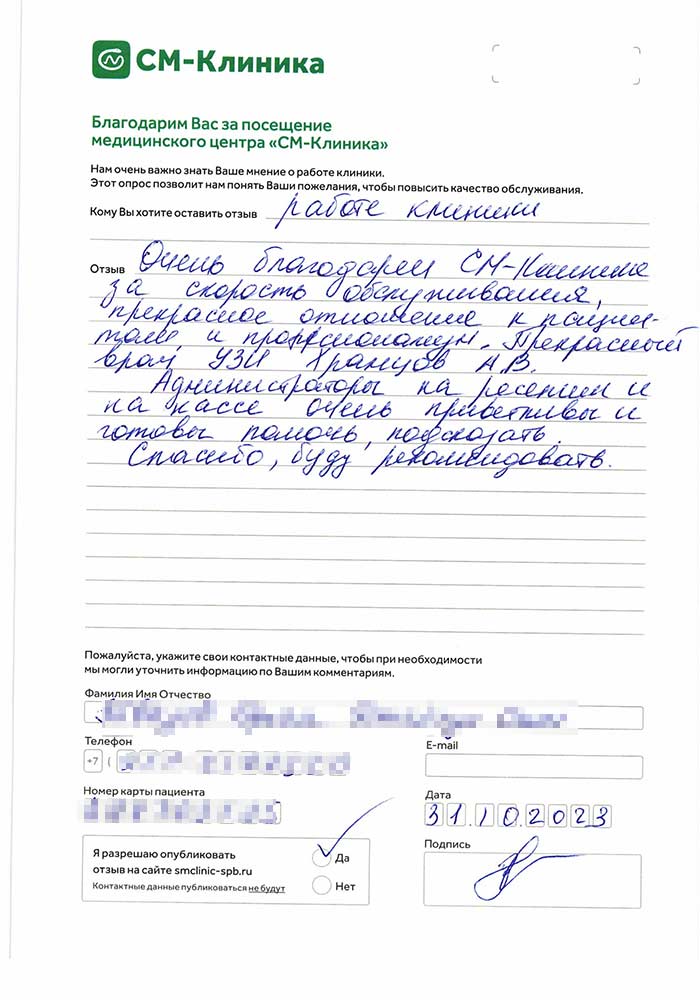 СМ-Клиника
Благодарим Вас за посещение
медицинского центра «СМ-Клиника»
Нам очень важно знать Ваше мнение о работе клиники.
Этот опрос позволит нам понять Ваши пожелания, чтобы повысить качество обслуживания.
Кому Вы хотите оставить отзыв работе клиники
Отзыв Очень благодарен СМ-Клинике
за скорость обслуживания,
прекрасное отношение к пациен-
там и профессионализм. Прекрасный
врач УЗИ А.В.
Администраторы на ресепшн и
на кассе очень приветливы и
готовы помочь, подсказать.
Спасибо, буду рекомендовать.
Пожалуйста, укажите свои контактные данные, чтобы при необходимости
мы могли уточнить информацию по Вашим комментариям.
Фамилия Имя Отчество
Телефон
E-mail
+7 (
Номер карты пациента
Дата
31.10.2023
Я разрешаю опубликовать
отзыв на сайте smclinic-spb.ru
Контактные данные публиковаться не будут
Да
Нет
Подпись